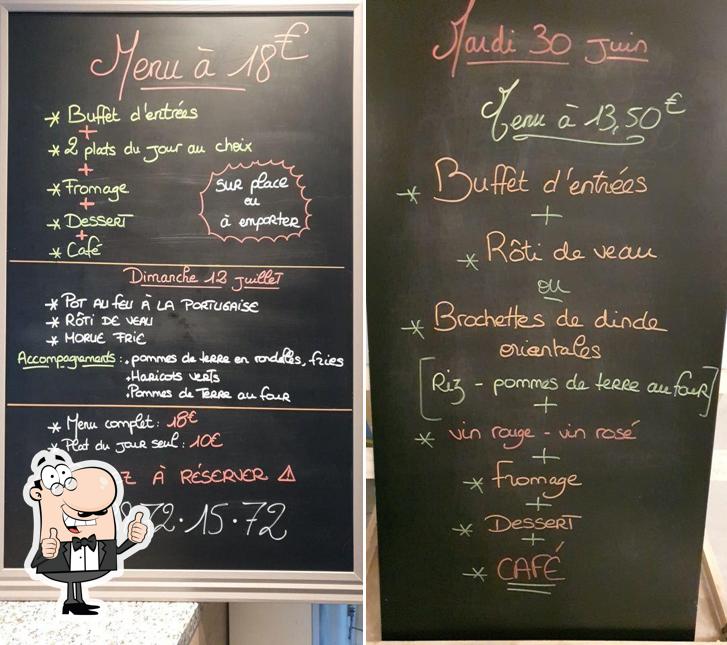 Menu à 18€
* Buffet d'entrées
+
* 2 plats du jour au choix
+
* Fromage
+
* Dessert
+
* Café
sur place
ou
à emporter
Dimanche 12 juillet
* Pot au feu à la Portugaise
* Rôti de veau
* Morue frie
Accompagnements : . pommes de terre en rondelles, fries
. Haricots verts
. Pommes de terre au four
* Menu complet : 18€
* Plat du jour seul : 10€
À RÉSERVER ⚠
72.15.72
Mardi 30 juin
Menu à 13,50€
* Buffet d'entrées
+
* Rôti de veau
ou
* Brochettes de dinde
orientales
[Riz - pommes de terre au four]
+
* vin rouge - vin rosé
+
* fromage
+
* Dessert
+
* CAFÉ